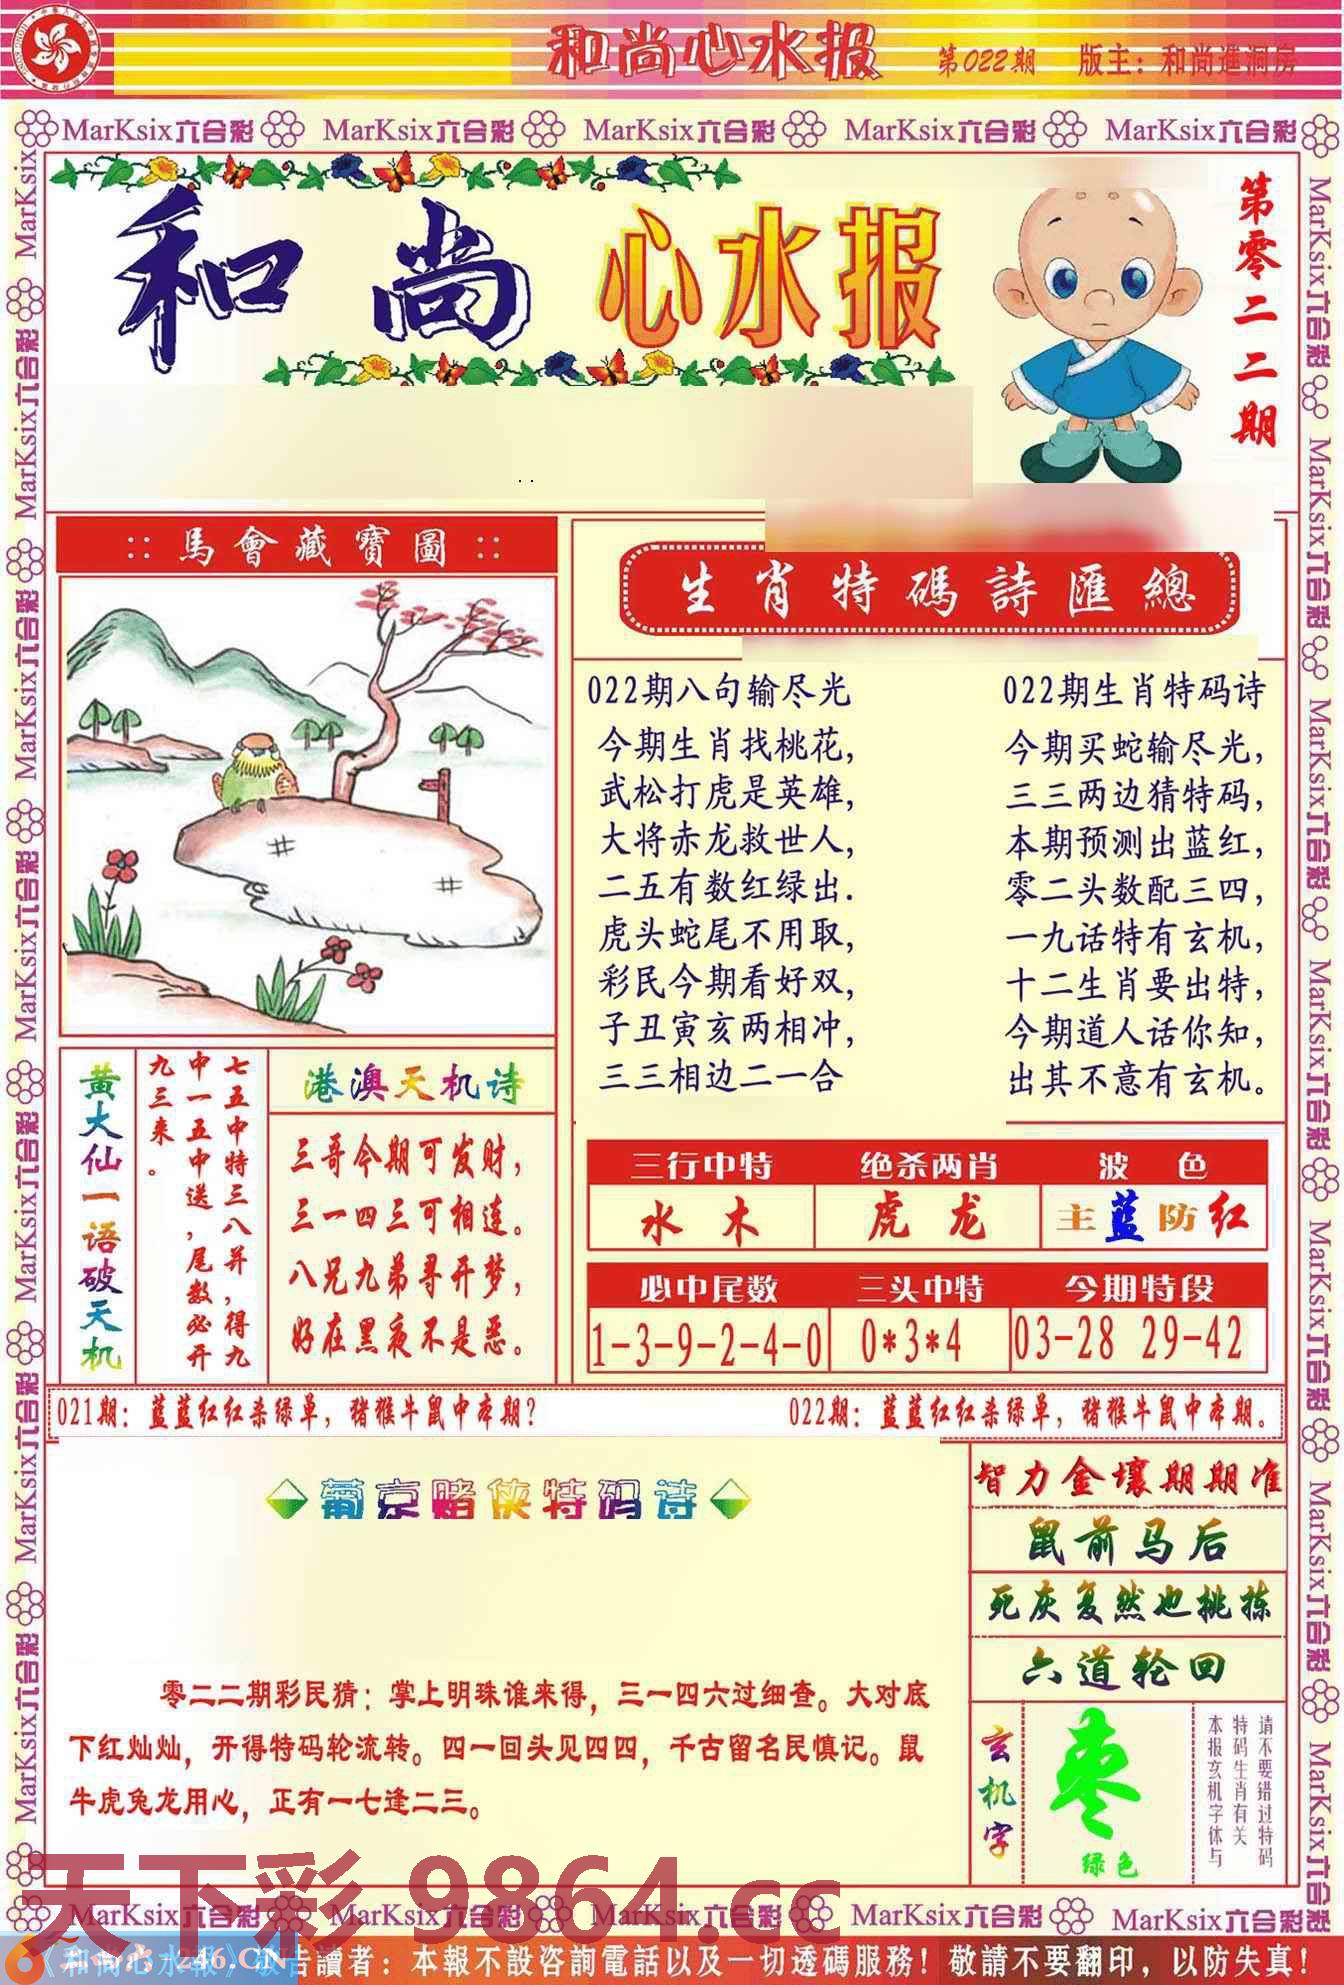 和尚心水报 第022期 版主：和尚進洞房
MarKsix六合彩 MarKsix六合彩 MarKsix六合彩 MarKsix六合彩 MarKsix六合彩
和尚心水报
第零二二期
::馬會藏寶圖::
生肖特碼詩匯總
022期八句输尽光
今期生肖找桃花,
武松打虎是英雄,
大将赤龙救世人,
二五有数红绿出.
虎头蛇尾不用取,
彩民今期看好双,
子丑寅亥两相冲,
三三相边二一合
022期生肖特码诗
今期买蛇输尽光,
三三两边猜特码,
本期预测出蓝红,
零二头数配三四,
一九话特有玄机,
十二生肖要出特,
今期道人话你知,
出其不意有玄机。
黄大仙一语破天机
七五中特三八并,得九
中一五中送,尾数必开
九三来。
港澳天机诗
三哥今期可发财,
三一四三可相连。
八兄九弟寻开梦,
好在黑夜不是恶。
三行中特 绝杀两肖 波色
水木 虎龙 主蓝防红
必中尾数 三头中特 今期特段
1-3-9-2-4-0 0*3*4 03-28 29-42
021期：蓝蓝红红杀绿单，猪猴牛鼠中本期?
022期：蓝蓝红红杀绿单，猪猴牛鼠中本期。
葡京赌侠特码诗
零二二期彩民猜：掌上明珠谁来得，三一四六过细查。大对底
下红灿灿，开得特码轮流转。四一回头见四四，千古留名民慎记。鼠
牛虎兔龙用心，正有一七逢二三。
智力金壤期期准
鼠前马后
死灰复然也挑拣
六道轮回
玄机字
枣
绿色
请不要错过特码
特码生肖有关
本报玄机字体与
天下彩 9864.cc
MarKsix六合彩 MarKsix六合彩 MarKsix六合彩 MarKsix六合彩 MarKsix六合彩
《和尚心水報》敬告讀者：本報不設咨詢電話以及一切透碼服務！敬請不要翻印，以防失真！
246.CN